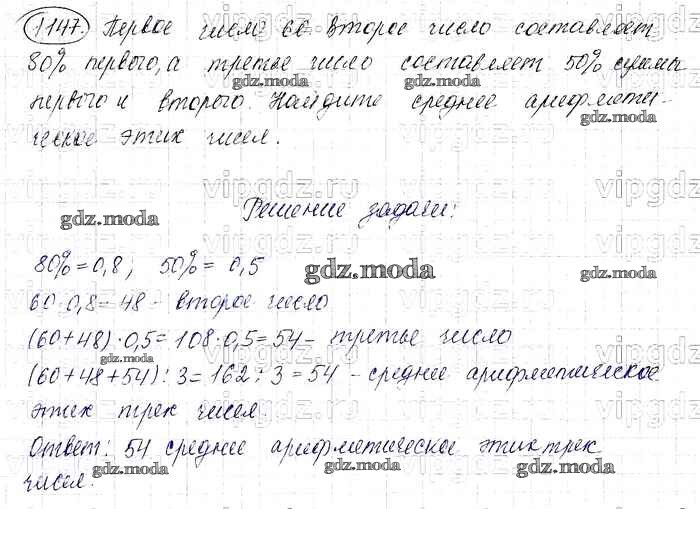 1147. Первое число 60. Второе число составляет
80% первого, а третье число составляет 50% суммы
первого и второго. Найдите среднее арифмети-
ческое этих чисел.
Решение задачи:
80% = 0,8; 50% = 0,5
60·0,8 = 48 - второе число
(60+48)·0,5 = 108·0,5 = 54 - третье число
(60+48+54):3 = 162:3 = 54 - среднее арифметическое
этих трех чисел.
Ответ: 54 среднее арифметическое этих трех
чисел.
gdz.moda
vipgdz.ru